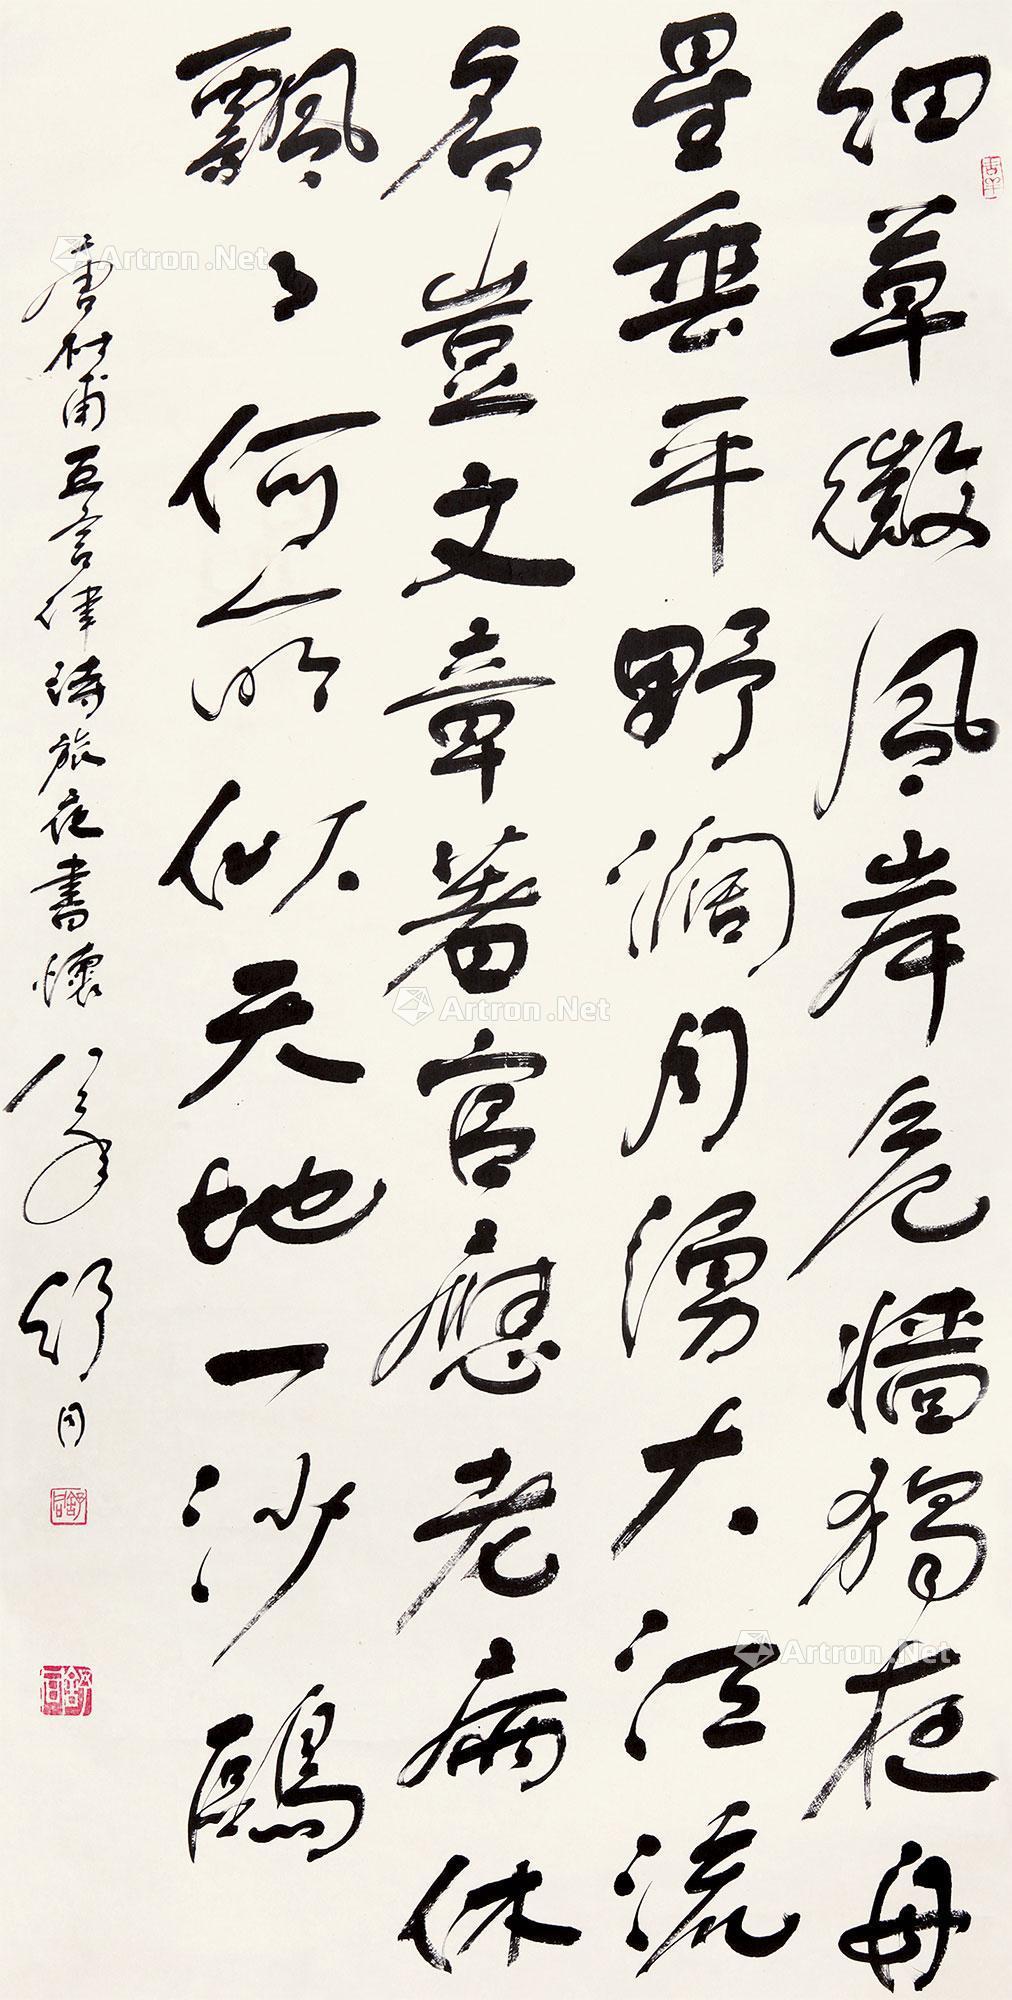 細草微風岸危檣獨夜舟
星垂平野闊月湧大江流
名豈文章著官應老病休
飄々何所似天地一沙鷗
唐杜甫五言律詩旅夜書懷 舒同
舒同
Artron.Net
Artron.Net
Artron.Net